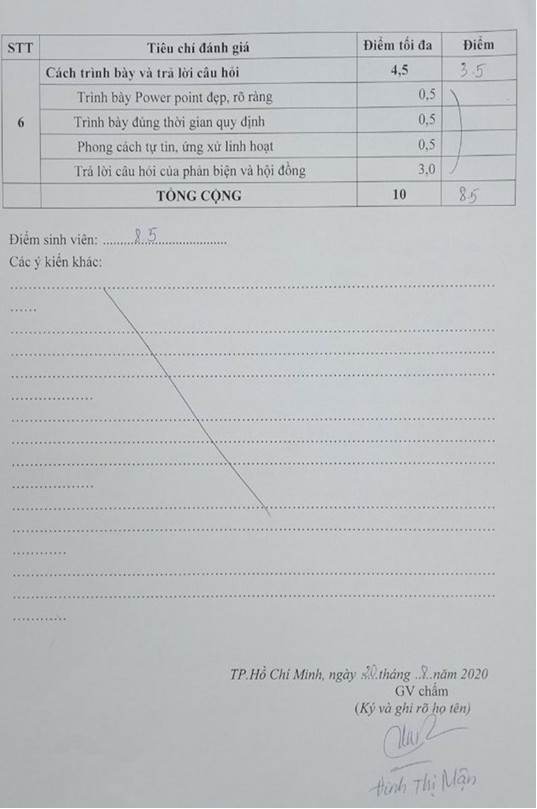 STT Tiêu chí đánh giá Điểm tối đa Điểm
Cách trình bày và trả lời câu hỏi 4,5 3.5
Trình bày Power point đẹp, rõ ràng 0,5
6 Trình bày đúng thời gian quy định 0,5
Phong cách tự tin, ứng xử linh hoạt 0,5
Trả lời câu hỏi của phản biện và hội đồng 3,0
TỔNG CỘNG 10 8.5
Điểm sinh viên: 8.5
Các ý kiến khác:
TP.Hồ Chí Minh, ngày 20 tháng 8 năm 2020
GV chấm
(Ký và ghi rõ họ tên)
Đinh Thị Mận